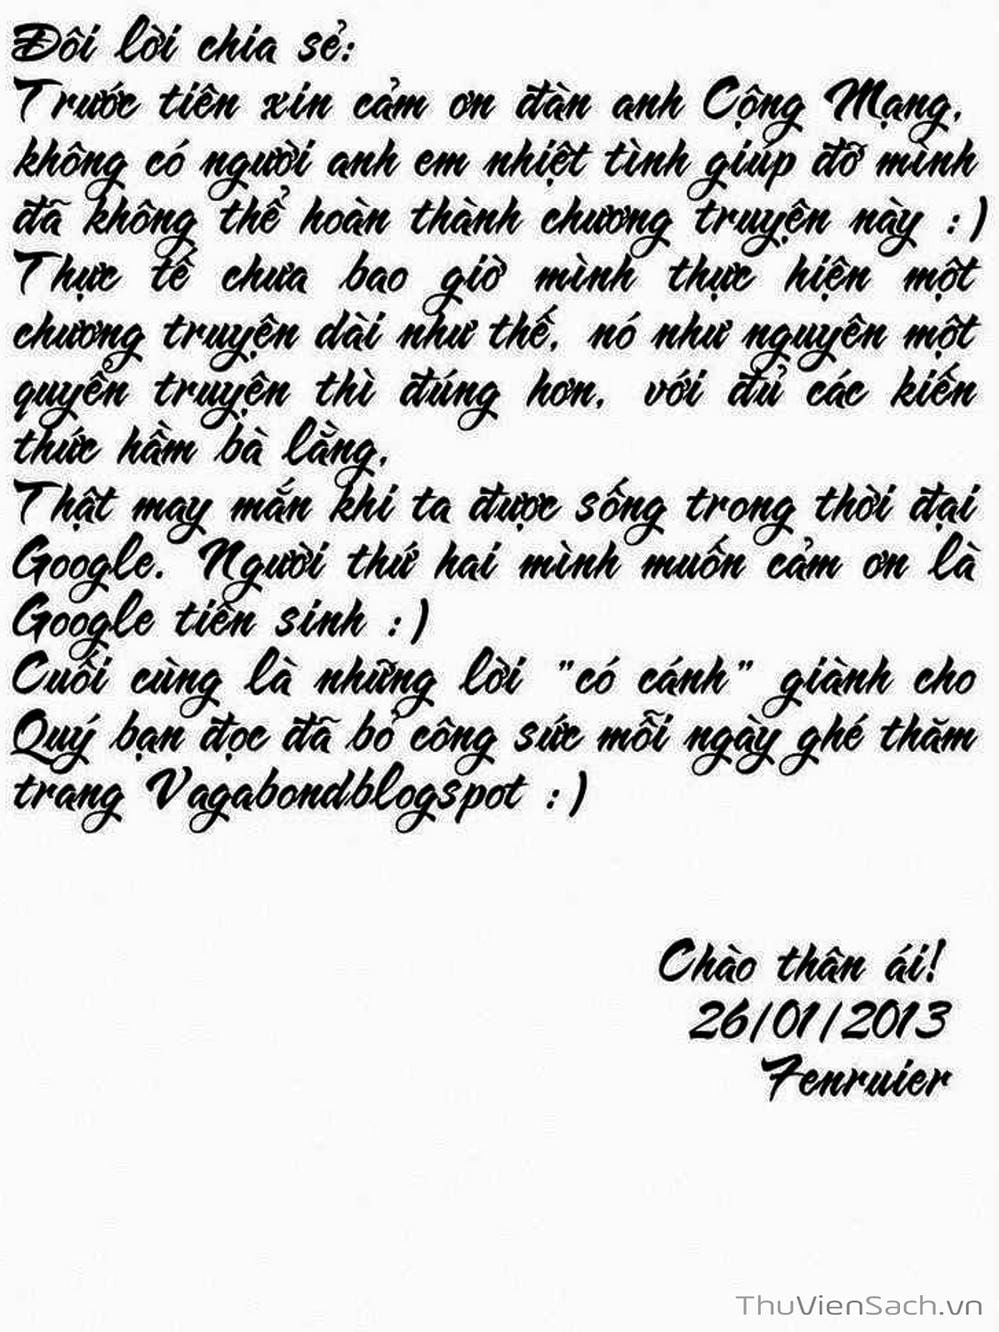 Đôi lời chia sẻ:
Trước tiên xin cảm ơn đàn anh Cộng Mạng,
không có người anh em nhiệt tình giúp đỡ mình
đã không thể hoàn thành chương truyện này :)
Thực tế chưa bao giờ mình thực hiện một
chương truyện dài như thế, nó như nguyên một
quyển truyện thì đúng hơn, với đủ các kiến
thức hầm bà lằng,
Thật may mắn khi ta được sống trong thời đại
Google. Người thứ hai mình muốn cảm ơn là
Google tiên sinh :)
Cuối cùng là những lời "có cánh" giành cho
Quý bạn đọc đã bỏ công sức mỗi ngày ghé thăm
trang Vagabondblogspot :)
Chào thân ái!
26/01/2013
Fenruier
ThuVienSach.vn